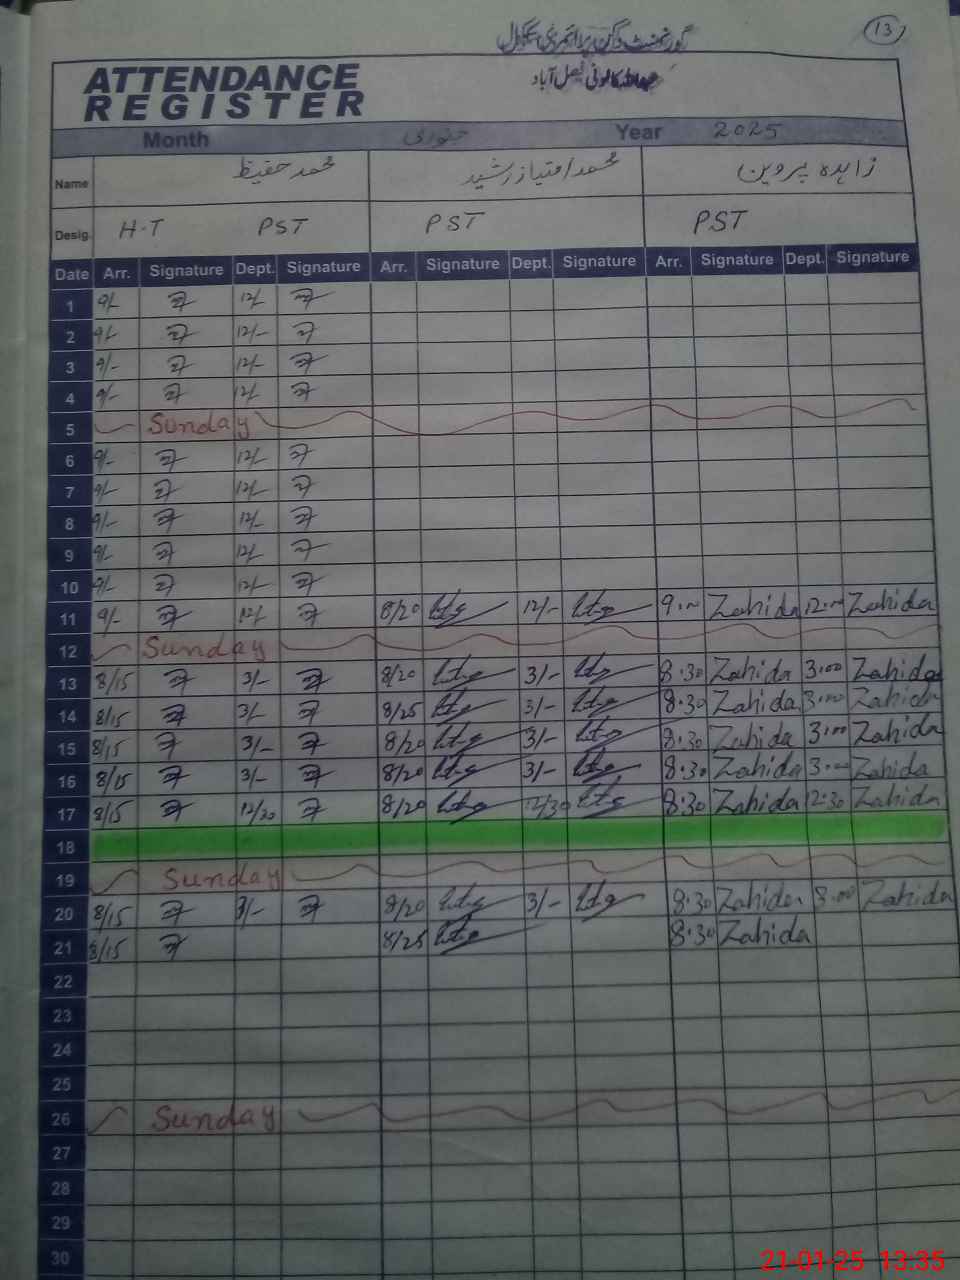 13
گورنمنٹ دکن پرائمری سکول
عبداللہ کالونی فیصل آباد
ATTENDANCE
REGISTER
Month جنوری Year 2025
Name محمد حفیظ محمد امتیاز رشید زاہدہ پروین
Desig. H-T PST PST PST
Date Arr. Signature Dept. Signature Arr. Signature Dept. Signature Arr. Signature Dept. Signature
1 9/- 12/-
2 9/- 12/-
3 9/- 12/-
4 9/- 12/-
5 Sunday
6 9/- 12/-
7 9/- 12/-
8 9/- 12/-
9 9/- 12/-
10 9/- 12/-
11 9/- 12/- 8/20 12/- 9.00 Zahida 12.00 Zahida
12 Sunday
13 8/15 3/- 8/20 3/- 8.30 Zahida 3.00 Zahida
14 8/15 3/- 8/25 3/- 8.30 Zahida 3.00 Zahida
15 8/15 3/- 8/20 3/- 8.30 Zahida 3.00 Zahida
16 8/15 3/- 8/20 3/- 8.30 Zahida 3.00 Zahida
17 8/15 12/30 8/20 12/30 8.30 Zahida 12.30 Zahida
18
19 Sunday
20 8/15 3/- 8/20 3/- 8.30 Zahida 3.00 Zahida
21 8/15 8/25 8.30 Zahida
22
23
24
25
26 Sunday
27
28
29
30
21-01-25 13:35